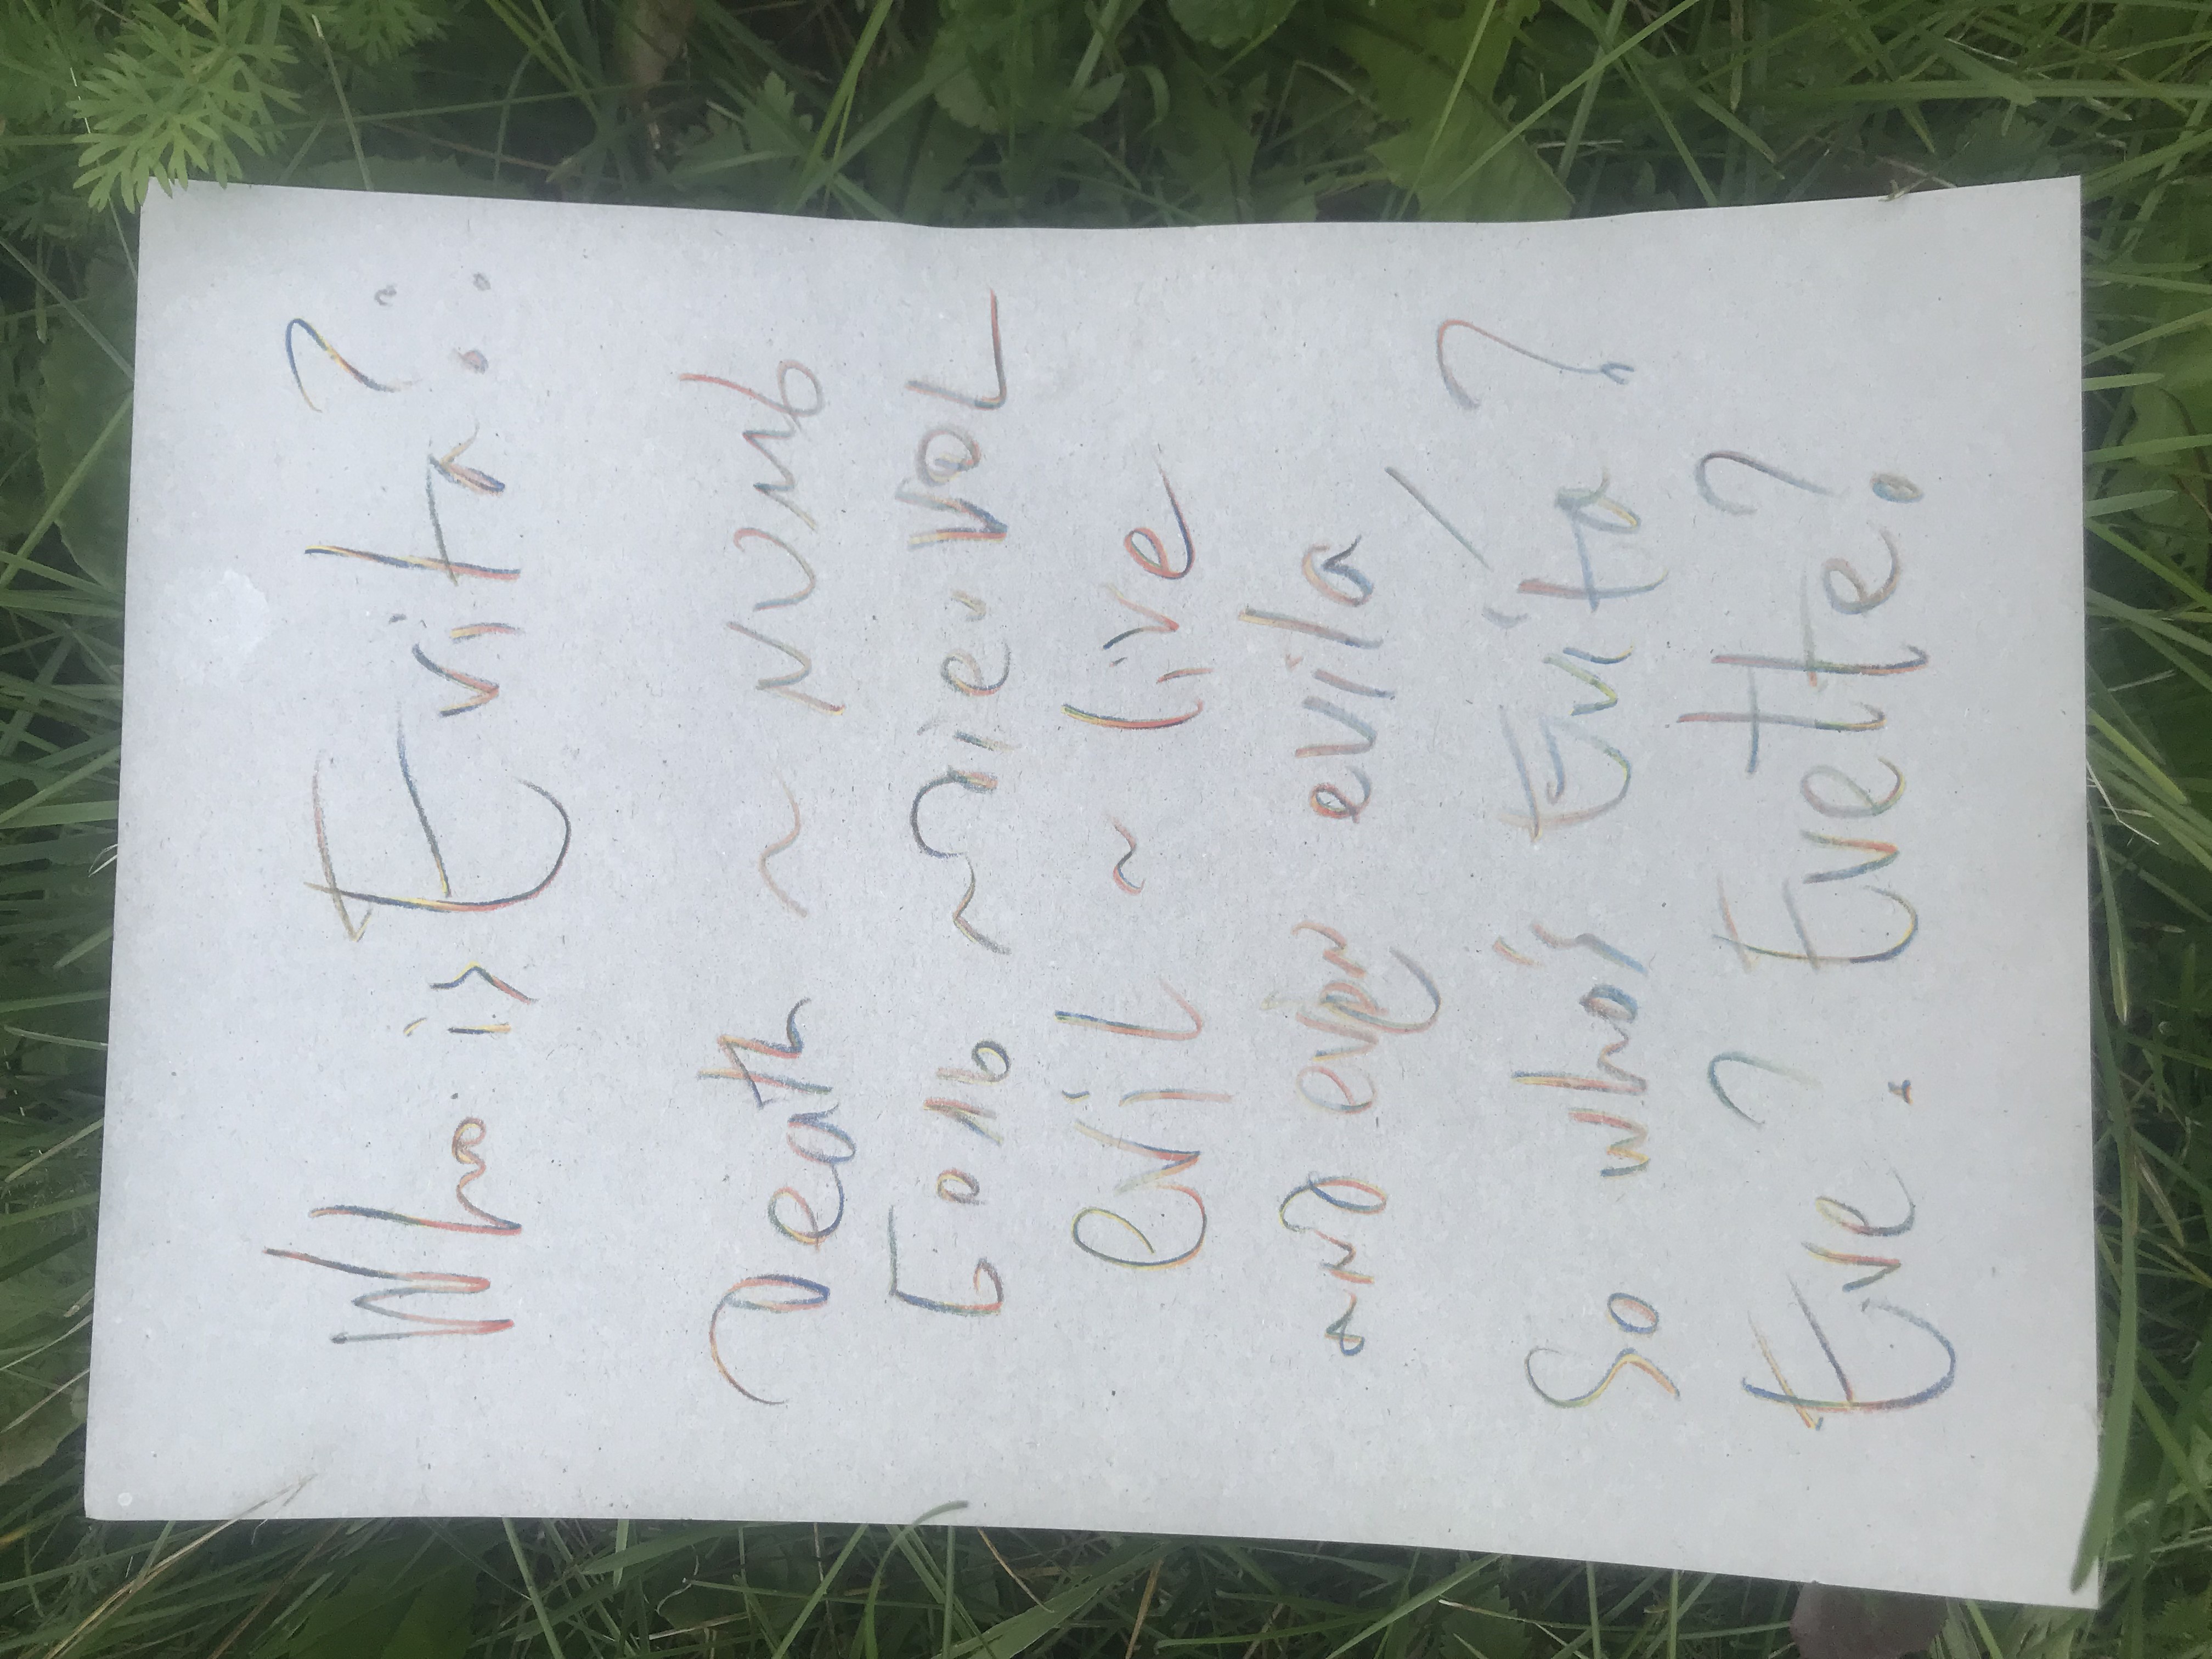 Who is Evita?:
Death ~ NUMB
боль ~ die. VOL
evil ~ live
and even evila
So who's Evita?
Eve? Evette?